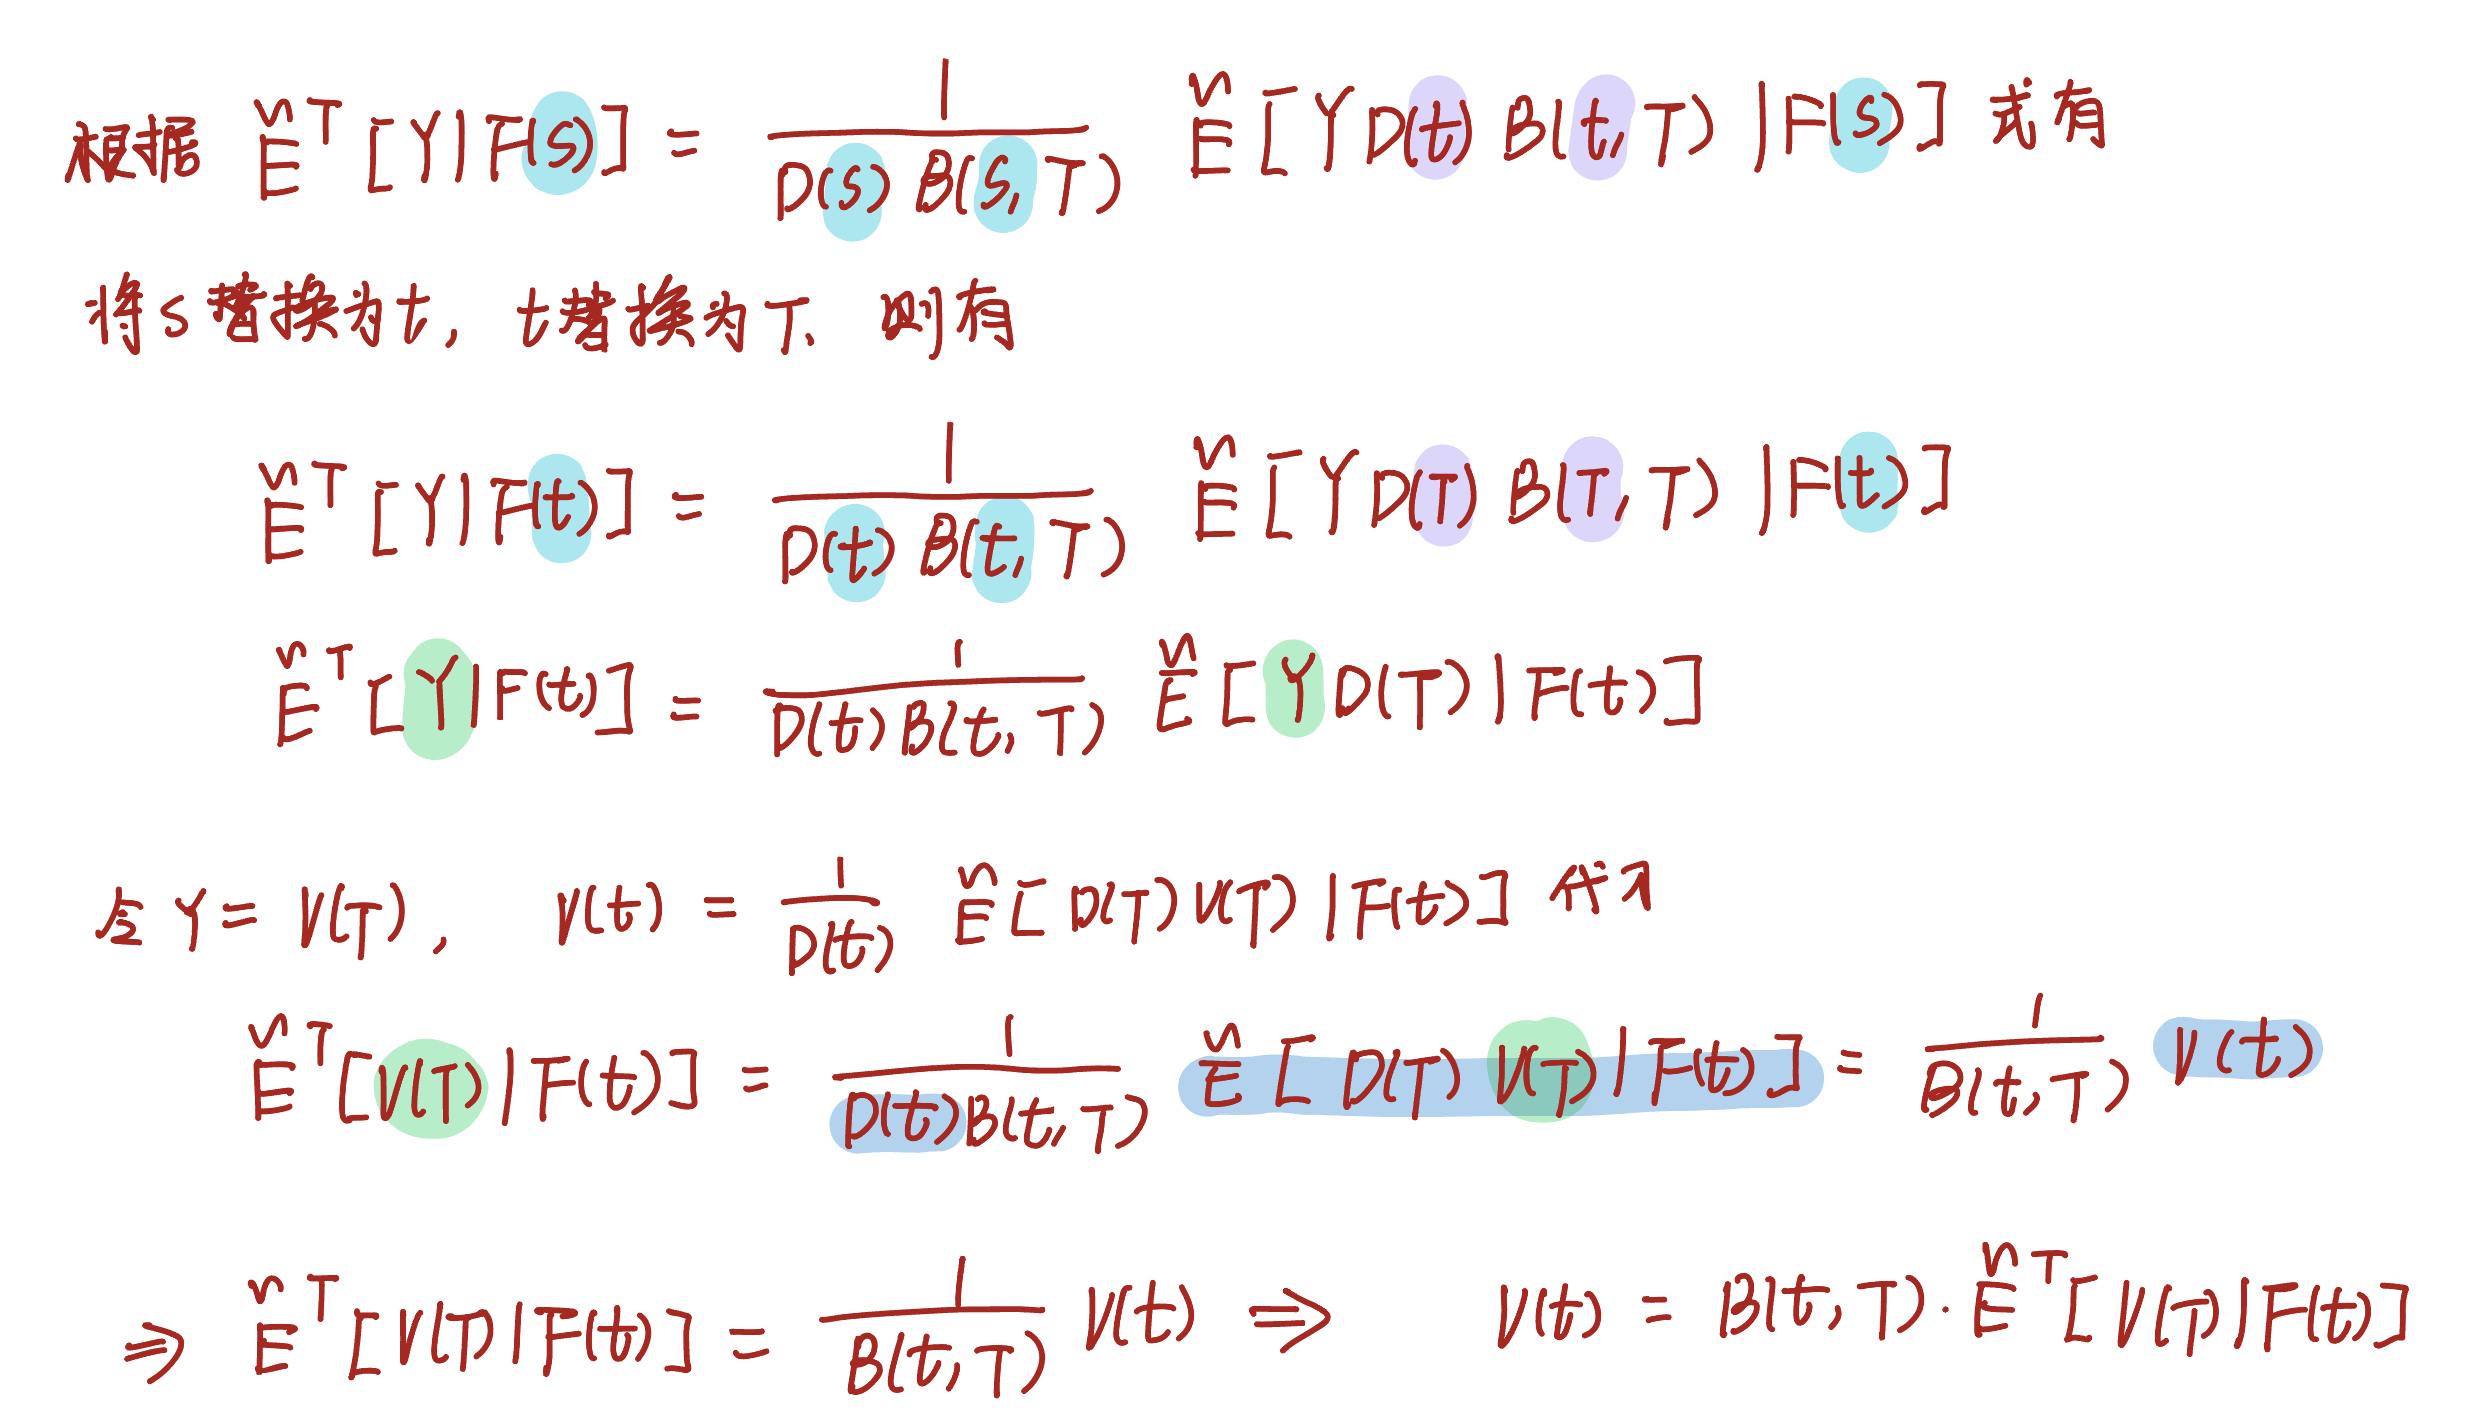 根据 Ẽ^T[Y|F(s)] = 1/(D(s)B(s,T)) Ẽ[YD(t)B(t,T)|F(s)] 式有
将s替换为t, t替换为T, 则有
Ẽ^T[Y|F(t)] = 1/(D(t)B(t,T)) Ẽ[YD(T)B(T,T)|F(t)]
Ẽ^T[Y|F(t)] = 1/(D(t)B(t,T)) Ẽ[YD(T)|F(t)]
令Y = V(T), V(t) = 1/D(t) Ẽ[D(T)V(T)|F(t)] 代入
Ẽ^T[V(T)|F(t)] = 1/(D(t)B(t,T)) Ẽ[D(T)V(T)|F(t)] = 1/B(t,T) V(t)
⇒ Ẽ^T[V(T)|F(t)] = 1/B(t,T) V(t) ⇒ V(t) = B(t,T)·Ẽ^T[V(T)|F(t)]